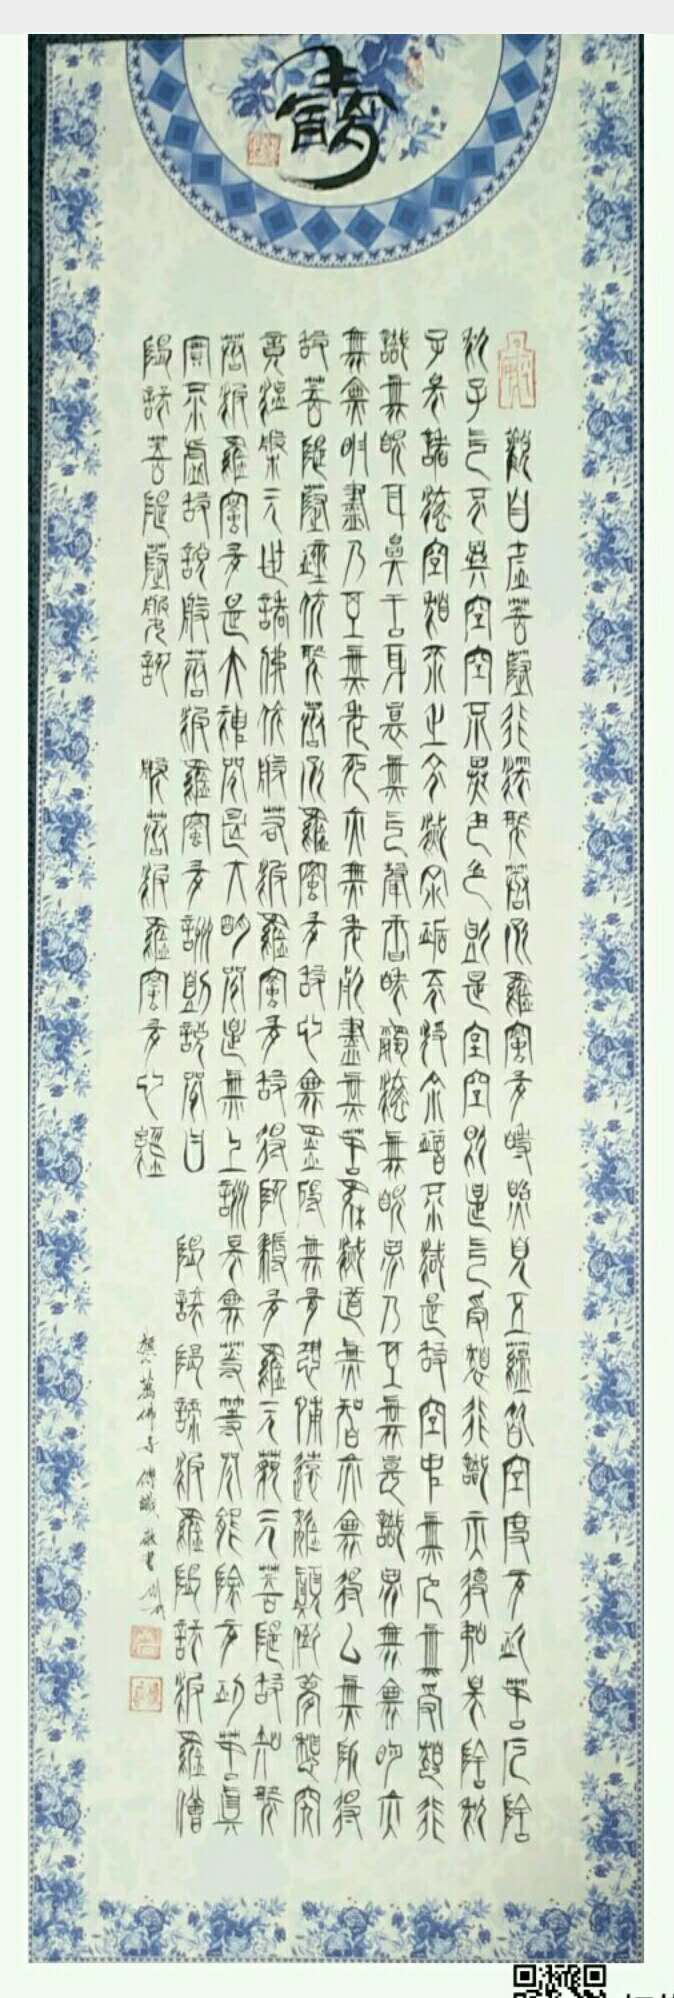 壽
觀自在菩薩行深般若波羅蜜多時照見五蘊皆空度一切苦厄舍
利子色不異空空不異色色即是空空即是色受想行識亦復如是舍利
子是諸法空相不生不滅不垢不淨不增不減是故空中無色無受想行
識無眼耳鼻舌身意無色聲香味觸法無眼界乃至無意識界無無明亦
無無明盡乃至無老死亦無老死盡無苦集滅道無智亦無得以無所得
故菩提薩埵依般若波羅蜜多故心無罣礙無有恐怖遠離顛倒夢想究
竟涅槃三世諸佛依般若波羅蜜多故得阿耨多羅三藐三菩提故知般
若波羅蜜多是大神咒是大明咒是無上咒是無等等咒能除一切苦真
實不虛故說般若波羅蜜多咒即說咒曰 揭諦揭諦波羅揭諦波羅僧
揭諦菩提薩婆訶 般若波羅蜜多心經
萬佛寺 敬書